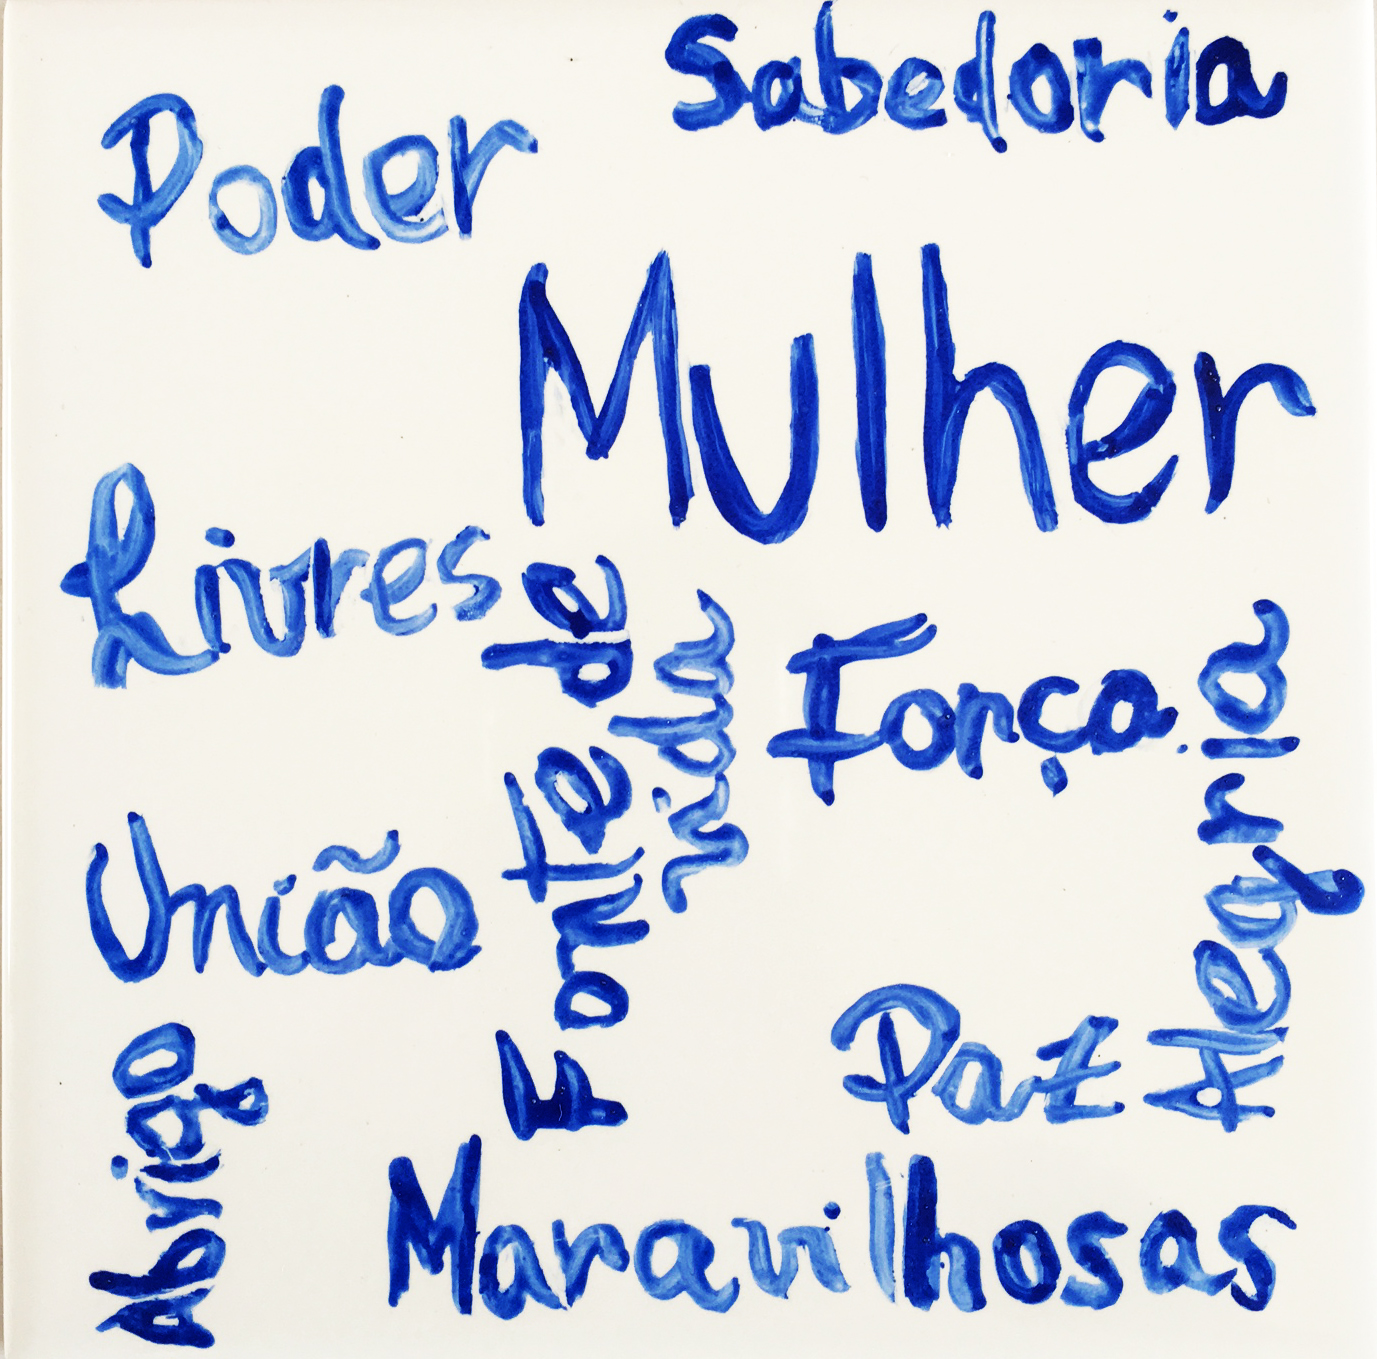 Sabedoria
Poder
Mulher
Livres
Fonte de
vida
Força
Alegria
União
Paz
Abrigo
Maravilhosas